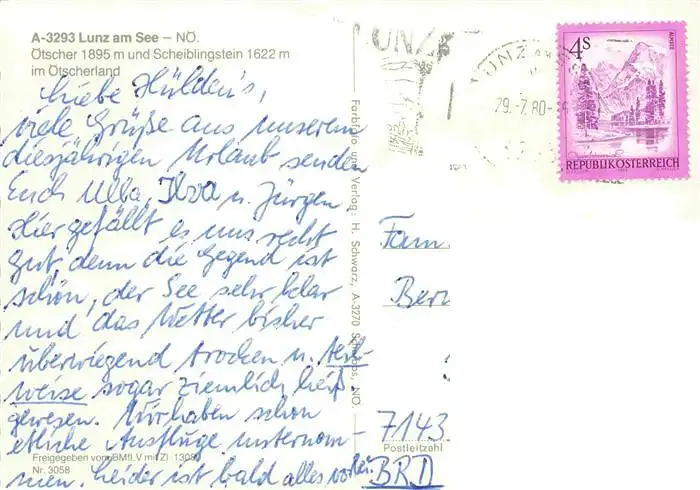 A-3293 Lunz am See – NÖ.
Ötscher 1895 m und Scheiblingstein 1622 m
im Ötscherland
Liebe Hülden's,
viele Grüße aus unserem
diesjährigen Urlaub senden
Euch Ulla, Ilva u. Jürgen,
Hier gefällt es uns recht
gut denn die Gegend ist
schön, der See sehr klar
und das Wetter bisher
überwiegend trocken u. teil-
weise sogar ziemlich heiß
gewesen. Wir haben schon
etliche Ausflüge unternom-
men. Leider ist bald alles vorbei.
Freigegeben vom BMfLV mit Zl. 1308
Nr. 3058
Farbfoto und Verlag: H. Schwarz, A-3270 Scheibbs, NÖ.
LUNZ
LUNZ AM
29.-7.80-
4S
ALMSEE
REPUBLIK ÖSTERREICH
Fam
Bern
7143
Postleitzahl
BRD